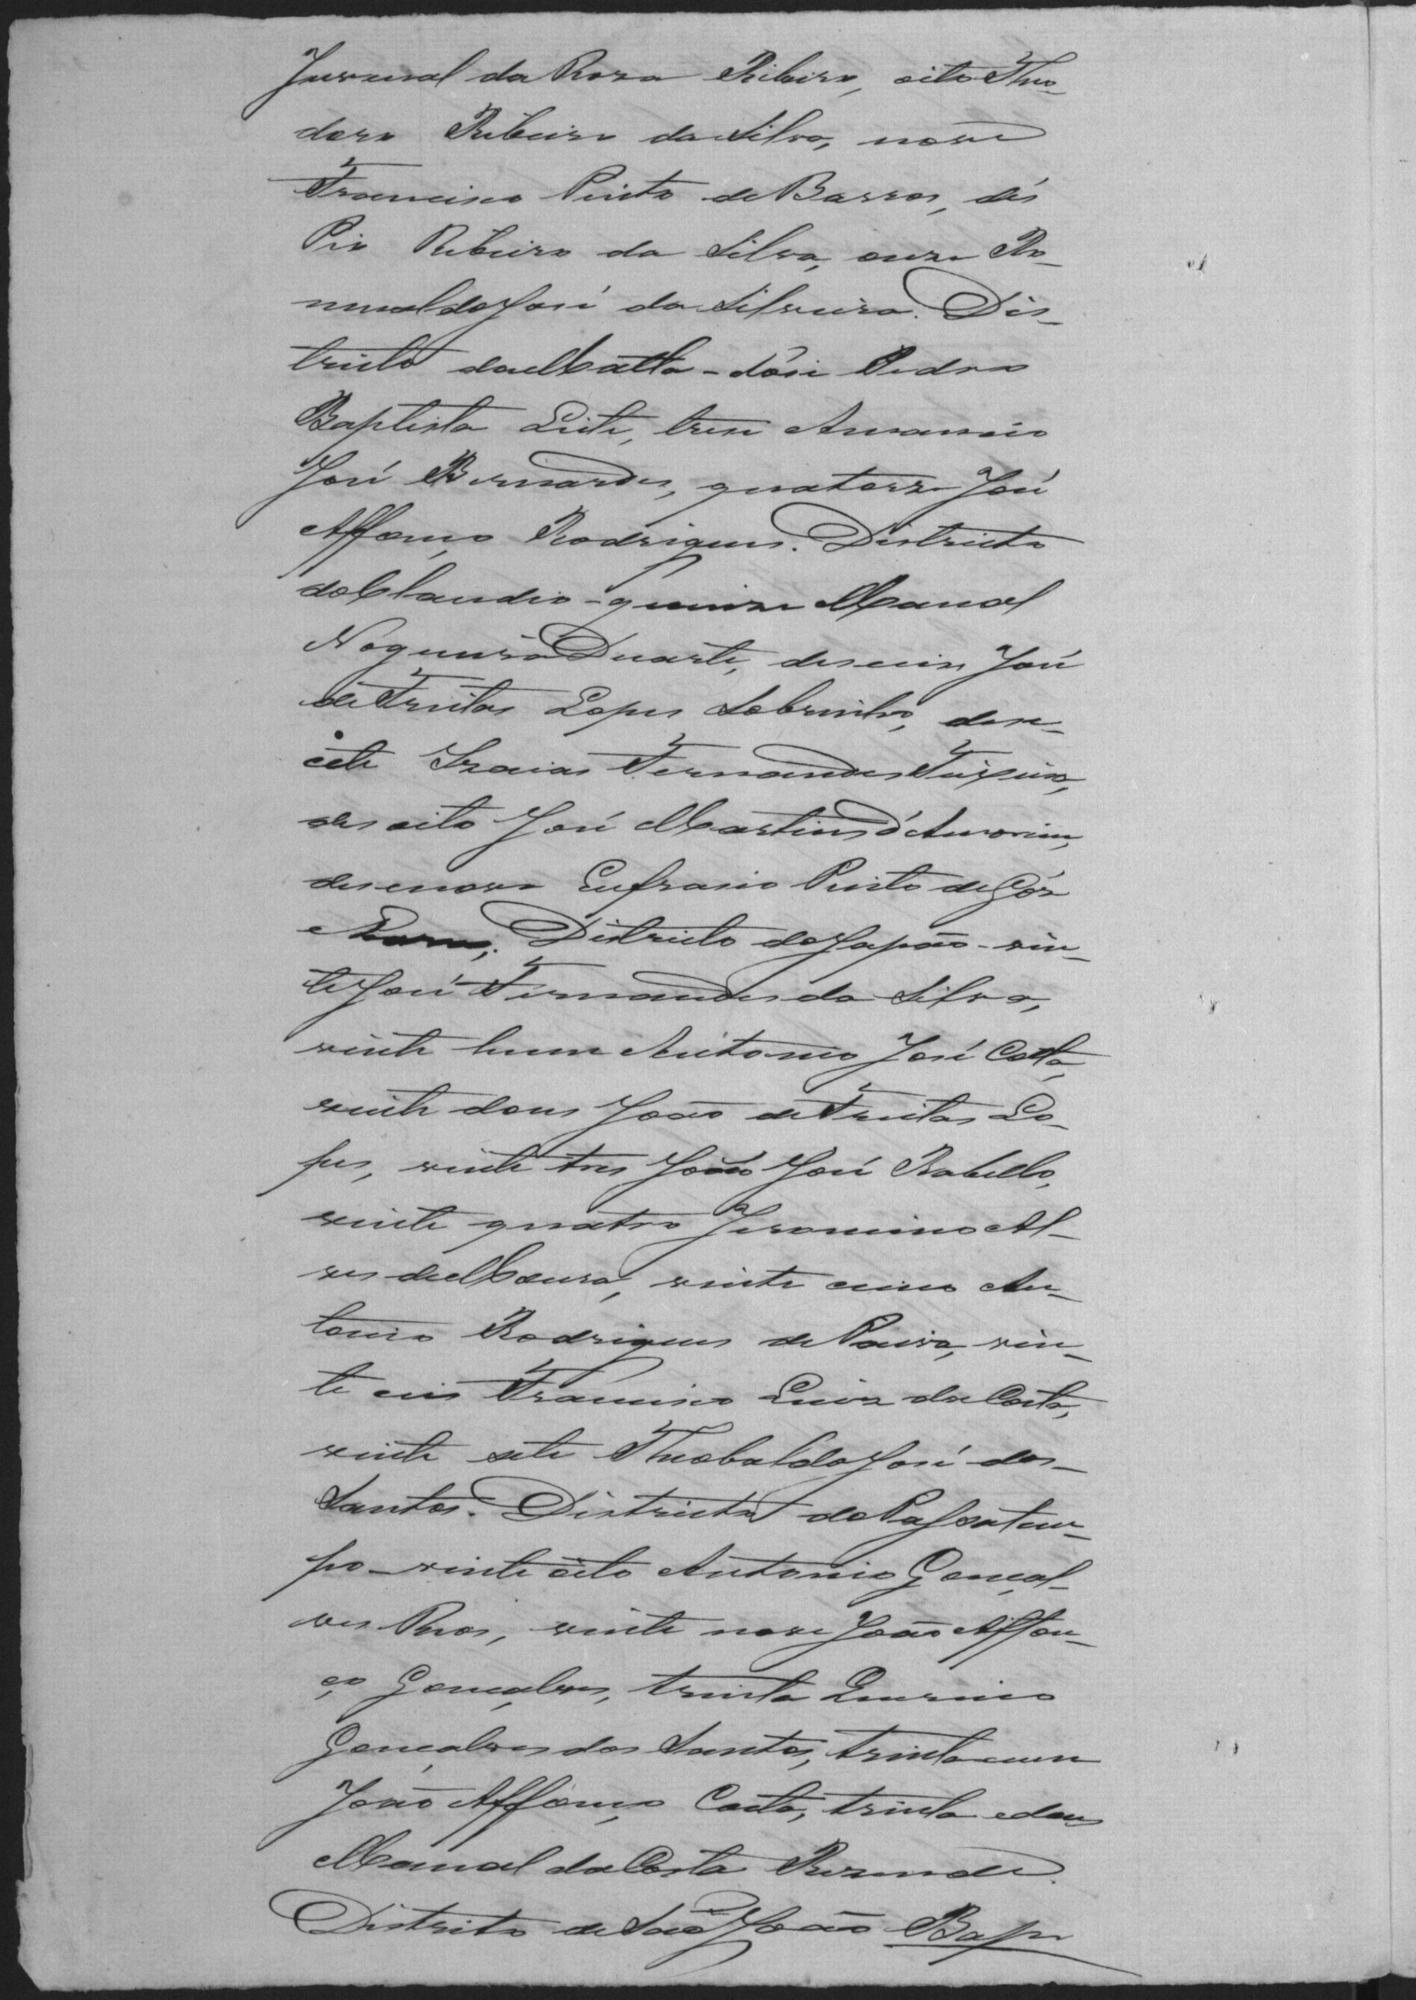 Juvenal da Roza Ribeiro, oito Theo-
doro Ribeiro da Silva, nove
Francisco Pinto de Barros, dés
Pio Ribeiro da Silva, onze Ro-
mualdo José da Silveira. Dis-
tricto da Matta - dóse Pedro
Baptista Leite, trese Amancio
José Bernardes, quatorze José
Affonço Rodrigues. Districto
do Claudio - quinze Manoel
Nogueira Duarte, deseseis José
de Freitas Lopes Sobrinho, dese-
cete Izaias Fernandes Teixeira,
desoito José Martins d'Amorim,
desenove Eufrasio Pinto de Góz
Districto do Japão - vin-
te José Fernandes da Silva,
vinte hum Antonio José Costa,
vinte dous João de Freitas Lo-
pes, vinte tres João José Rabello,
vinte quatro Jeronimo Al-
ves de Moura, vinte cinco An-
tonio Rodrigues de Paiva, vin-
te ceis Francisco Luiz da Costa,
vinte sete Theobaldo José dos
Santos. Districto do Passatem-
po - vinte oito Antonio Gonçal-
ves vinte nove João Affon-
ço Gonçalves, trinta Quirino
Gonçalves dos Santos, trinta e um
João Affonço Costa, trinta e dous
Manoel da Costa Rezende.
Districto de São João Bap